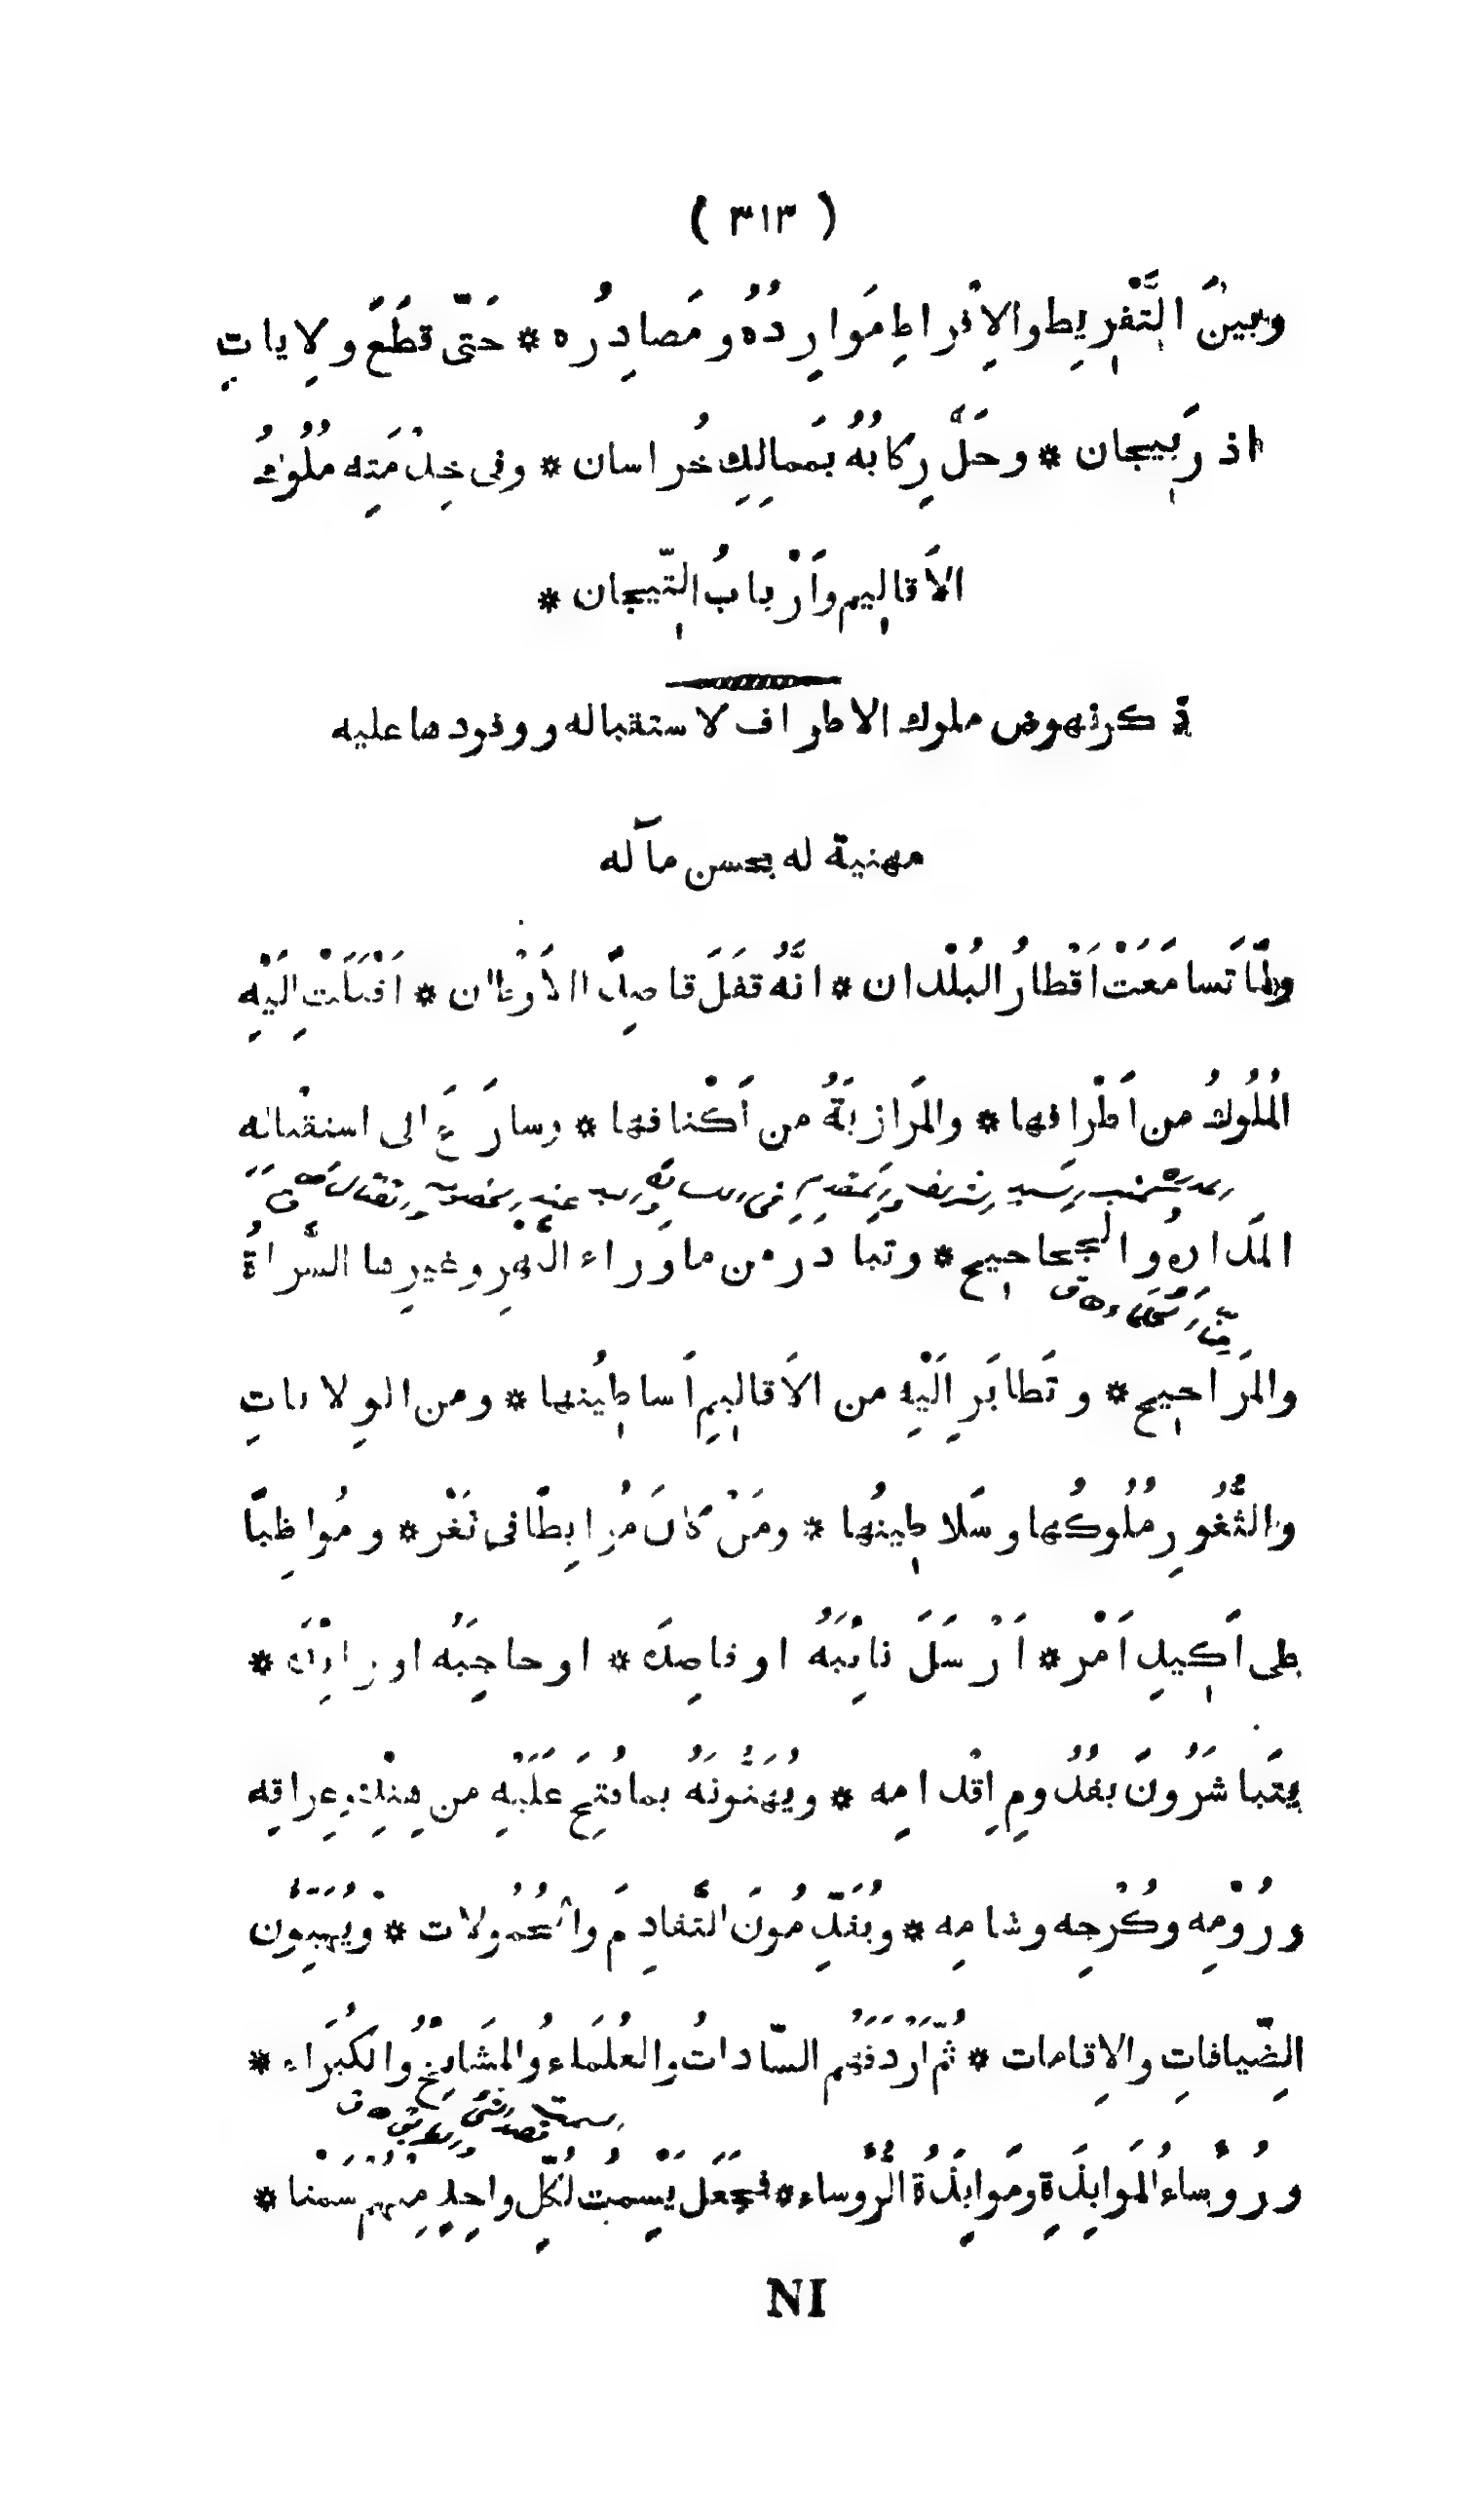 ( ٣١٣ )
وبينَ التَّفْرِيِط والاِفْراطِ مَوارِدُهُ ومَصادِرُه * حَتّى قطَعَ وِلاياتِ
اذرَبيجان * وحَلَّ رِكابُهُ بمَمالِكِ خُراسان * وفى خِدْمَتِه مُلُوكُ
الاَقاليم واَرْبابُ التّيجان *
ذكر نهوض ملوك الاطراف لاستقباله ووفودها عليه
مهنية له بحسن مآله
ولمّا تَسامَعَتْ اَقْطارُ البُلْدان * انَّهُ قفَلَ قاصِدًا الاَوْطان * اَقْبَلَتْ اِلَيْهِ
المُلُوكُ من اَطْرافها * والمَرازبَةُ من اَكْنافها * وسارَعَ الى استقْباله
المَدارِهُ والجحاجيح * وتبادَرَ من ماوَراء النَّهْرِ وغيرِها السَّراةُ
والمَراجيح * وتَطايَرِ اَلَيْهِ من الاَقاليمِ اَساطِيُنها * ومن الوِلاياتِ
والثُّغُورِ مُلُوكُها وسَلاطينُها * ومَنْ كانَ مُرابِطًا فى ثَغْر * ومُواظِبًا
على اَكيدِ اَمْر * اَرْسَلَ نائِبَهُ او قاصِدَه * او حاجِبَهُ او رائِدَه *
يتَباشَرُونَ بقُدُومِ اِقْدامِه * ويُهَنُّونَهُ بما فُتِحَ عَلَيْهِ من هِنْدِه وعِراقِه
ورُوْمِه وكُرْجِه وشامِه * ويُقَدِّمُونَ التَّقادِمَ والحُمُولات * ويُهَيِّؤُن
الضِّيافاتِ والاِقامات * ثُمّ اَرْدَفَهُم السّاداتُ والعُلَماءُ والمَشايِخُ والكُبَراء *
ورُؤَساءُ المَوابِذَةِ ومَوابِذَةُ الرُّؤساء * فجَعَل يَسْمِتُ لكُلِّ واحِدٍ مِنْهُم سَمْتا *
NI